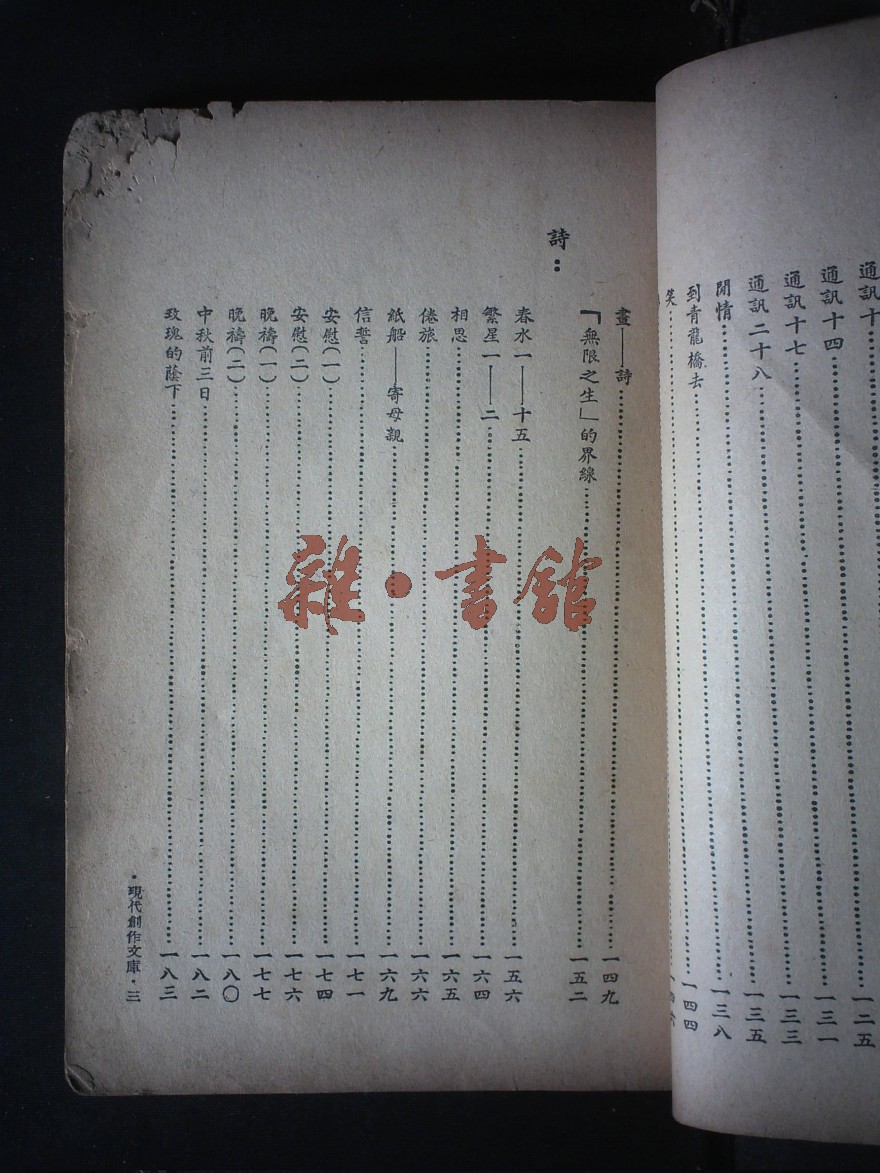 通訊十
一二五
通訊十四
一三一
通訊十七
一三三
通訊二十八
一三五
閒情
一三八
到青龍橋去
一四四
笑
一四六
畫——詩
一四九
「無限之生」的界線
一五二
詩：
春水一——十五
一五六
繁星一——二
一六四
相思
一六五
倦旅
一六六
紙船——寄母親
一六九
信誓
一七一
安慰(一)
一七四
安慰(二)
一七六
晚禱(一)
一七七
晚禱(二)
一八〇
中秋前三日
一八二
玫瑰的蔭下
一八三
·現代創作文庫·三
雜·書館